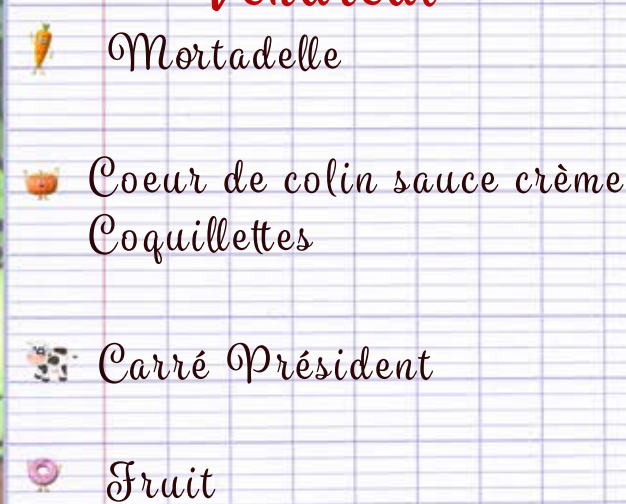 Vendredi
Mortadelle
Coeur de colin sauce crème
Coquillettes
Carré Président
Fruit